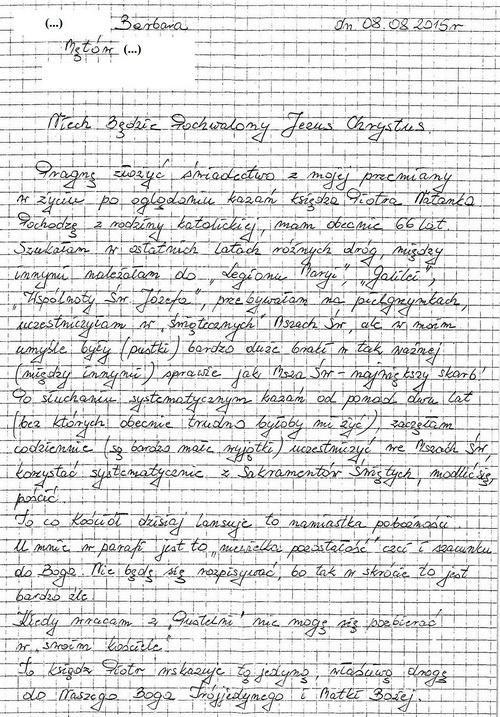 (...) Barbara dn. 08.08.2015r
Mętów (...)
Niech Będzie Pochwalony Jezus Chrystus.
Pragnę złożyć świadectwo z mojej przemiany
w życiu po oglądaniu kazań księdza Piotra Natanka
Pochodzę z rodziny katolickiej, mam obecnie 66 lat.
Szukałam w ostatnich latach różnych dróg, między
innymi należałam do "Legionu Maryi", "Galilei",
"Wspólnoty Św. Józefa", przebywałam na pielgrzymkach,
uczestniczyłam w "świątecznych" Mszach Św, ale w moim
umyśle były (pustki) bardzo duże braki w tak ważnej
(między innymi) sprawie jak Msza Św - największy skarb!
Po słuchaniu systematycznym kazań od ponad dwu lat
(bez których obecnie trudno byłoby mi żyć), zaczęłam
codziennie (są bardzo małe wyjątki) uczestniczyć we Mszach Św,
korzystać systematycznie z Sakramentów Świętych, modlić się,
pościć.
To co Kościół dzisiaj lansuje to namiastka pobożności.
U mnie w parafii jest to "niewielka pozostałość" czci i szacunku
do Boga. Nie będę się rozpisywać, bo tak w skrócie to jest
bardzo źle
Kiedy wracam z "Pustelni" nie mogę się pozbierać
w "swoim kościele".
To ksiądz Piotr wskazuje tą jedyną, właściwą drogę
do Naszego Boga Trójjedynego i Matki Bożej.